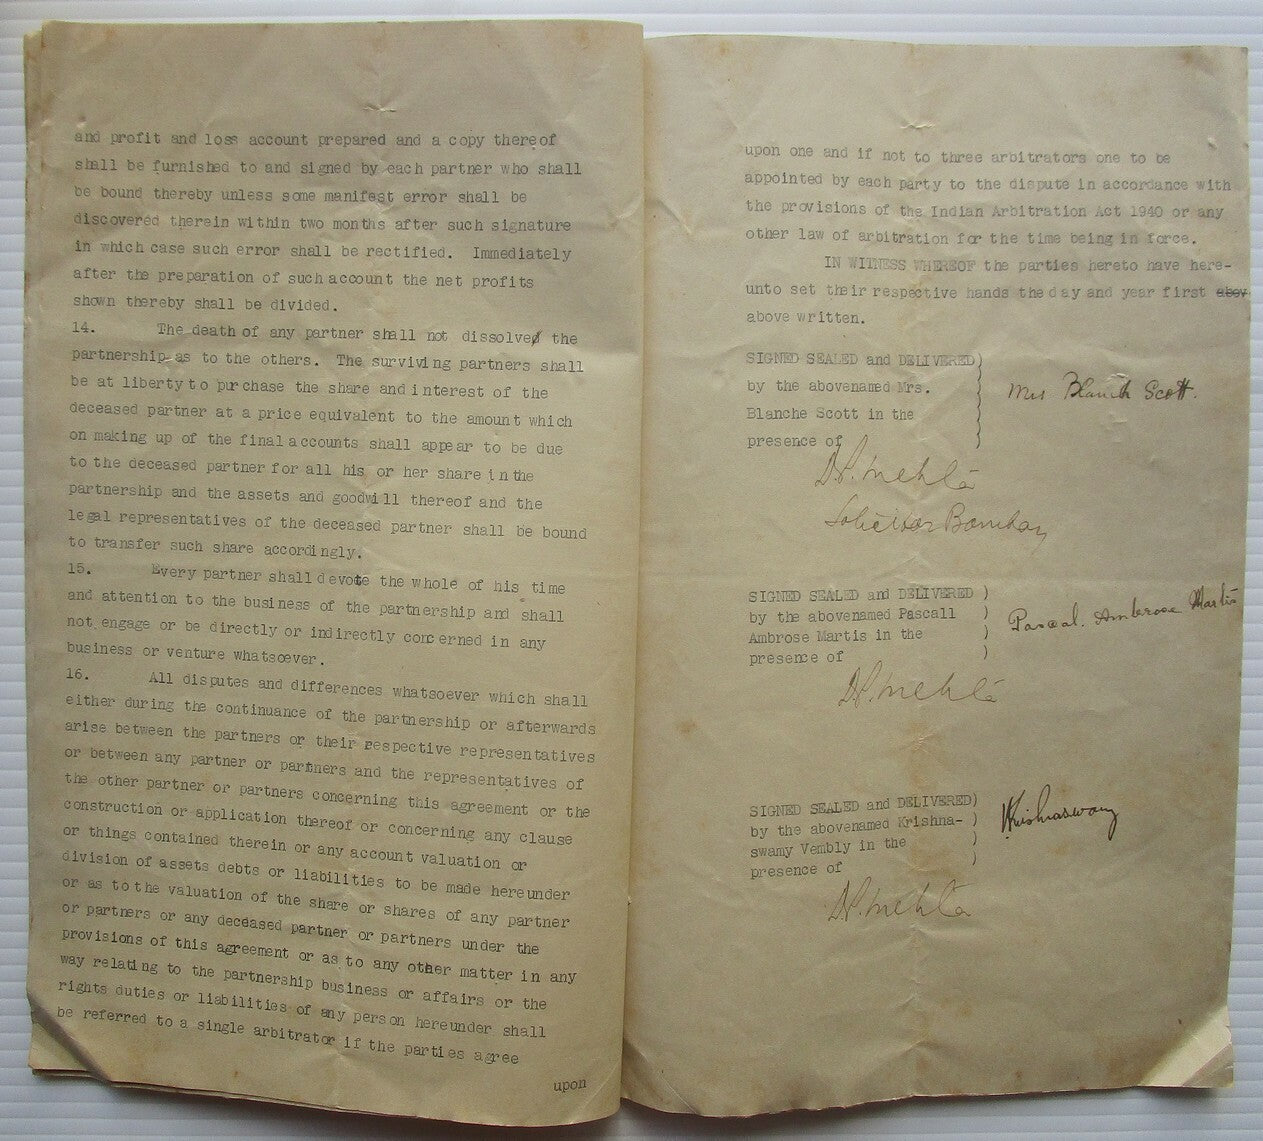 and profit and loss account prepared and a copy thereof
shall be furnished to and signed by each partner who shall
be bound thereby unless some manifest error shall be
discovered therein within two months after such signature
in which case such error shall be rectified. Immediately
after the preparation of such account the net profits
shown thereby shall be divided.
14. The death of any partner shall not dissolve the
partnership as to the others. The surviving partners shall
be at liberty to purchase the share and interest of the
deceased partner at a price equivalent to the amount which
on making up of the final accounts shall appear to be due
to the deceased partner for all his or her share in the
partnership and the assets and goodwill thereof and the
legal representatives of the deceased partner shall be bound
to transfer such share accordingly.
15. Every partner shall devote the whole of his time
and attention to the business of the partnership and shall
not engage or be directly or indirectly concerned in any
business or venture whatsoever.
16. All disputes and differences whatsoever which shall
either during the continuance of the partnership or afterwards
arise between the partners or their respective representatives
or between any partner or partners and the representatives of
the other partner or partners concerning this agreement or the
construction or application thereof or concerning any clause
or things contained therein or any account valuation or
division of assets debts or liabilities to be made hereunder
or as to the valuation of the share or shares of any partner
or partners or any deceased partner or partners under the
provisions of this agreement or as to any other matter in any
way relating to the partnership business or affairs or the
rights duties or liabilities of any person hereunder shall
be referred to a single arbitrator if the parties agree
upon
upon one and if not to three arbitrators one to be
appointed by each party to the dispute in accordance with
the provisions of the Indian Arbitration Act 1940 or any
other law of arbitration for the time being in force.
IN WITNESS WHEREOF the parties hereto have here-
unto set their respective hands the day and year first abov
above written.
SIGNED SEALED and DELIVERED)
by the abovenamed Mrs.
Blanche Scott in the
presence of
Mrs Blanch Scott.
D.P. Mehta
Solicitor Bombay
SIGNED SEALED and DELIVERED )
by the abovenamed Pascall )
Ambrose Martis in the )
presence of )
Pascal. Ambrose Martis
D.P. Mehta
SIGNED SEALED and DELIVERED)
by the abovenamed Krishna- )
swamy Vembly in the )
presence of )
Krishnaswamy
D.P. Mehta